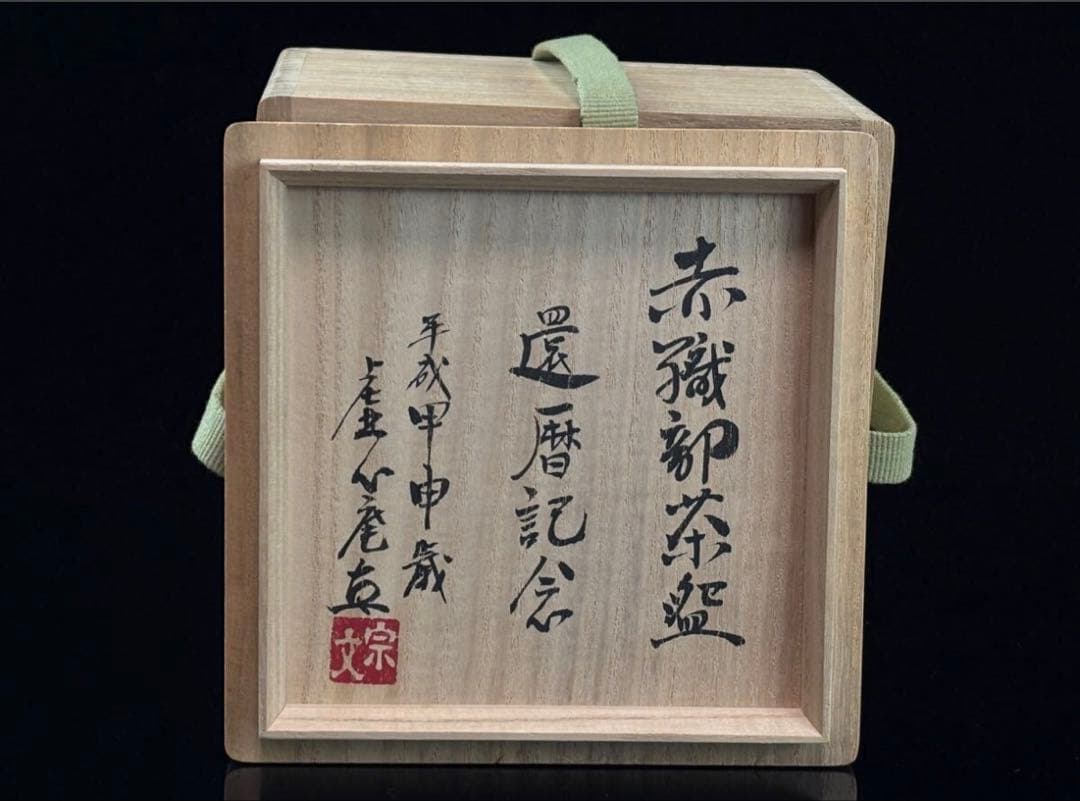 赤織部茶盌
還暦記念
平成甲申歳
虚心庵
宗文